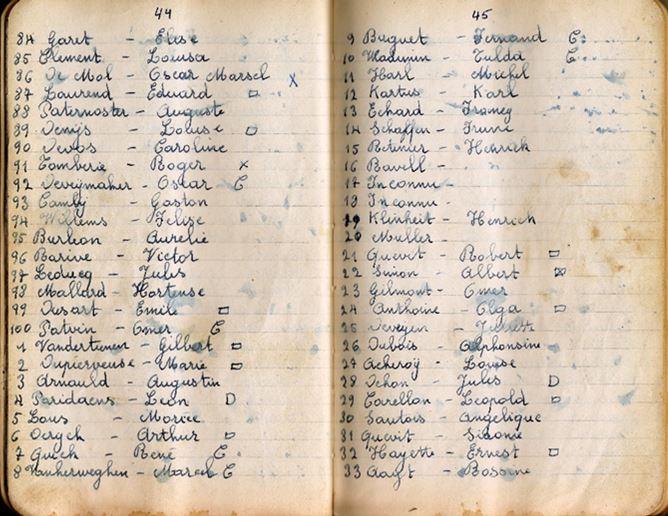 44
84 Garet - Elise
85 Clement - Louisa
86 De Mol - Oscar Marsel x
87 Laurend - Edward □
88 Paternoster - Auguste
89 Denijs - Louise □
90 Devos - Caroline
91 Tomberie - Roger x
92 Deveijmaker - Oscar C
93 Camby - Gaston
94 Willems - Felise
95 Burleon - Aurelie
96 Barive - Victor
97 Leducq - Jules
98 Mallard - Hortense
99 Desart - Emile □
100 Patvin - Omer C
1 - Gilbert □
2 Dupierveuse - Marie □
3 Arnauld - Augustin
4 Paridaens - Leon D
5 Lous -
6 - Arthur □
7 - René C.
8 Vankerweghen - Marcel C
45
9 Buguet - Fernand C.
10 - Tulda C.
11 Harl - Michel
12 Kartus - Karl
13 Echard - Francy
14 Schaffen -
15 - Henrich
16 Bavell -
17 Inconnu -
18 Inconnu -
19 Kleinheit - Henrich
20 Muller -
21 Quevit - Robert □
22 Simon - Albert ⊠
23 Gilmont - Omer
24 Anthoine - Olga □
25 Deveyer -
26 Dubois - Alphonsine
27 - Louise
28 Dehon - Jules D
29 Carellon - Leopold □
30 Sautois - Angelique
31 Quevit - Sidonie
32 Hayette - Ernest □
33 -